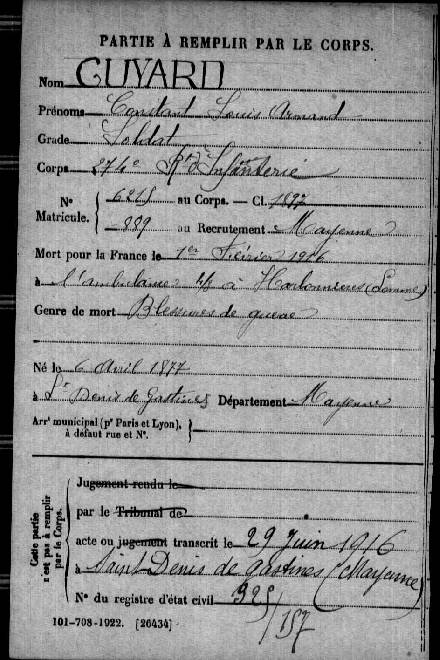 PARTIE À REMPLIR PAR LE CORPS.
Nom GUYARD
Prénoms Constant Louis Armand
Grade Soldat
Corps 274e Rt d'Infanterie
N° Matricule. { 6215 au Corps. — Cl. 1897
889 au Recrutement Mayenne
Mort pour la France le 1er Février 1916
à l'ambulance à Harbonnières (Somme)
Genre de mort Blessures de guerre
Né le 6 Avril 1877
à St Denis de Gastines Département Mayenne
Arrt municipal (pr Paris et Lyon), à défaut rue et N°. }
Cette partie n'est pas à remplir par le Corps.
Jugement rendu le
par le Tribunal de
acte ou jugement transcrit le 29 Juin 1916
à Saint Denis de Gastines (Mayenne)
N° du registre d'état civil 325/157
101-708-1922. [26434]